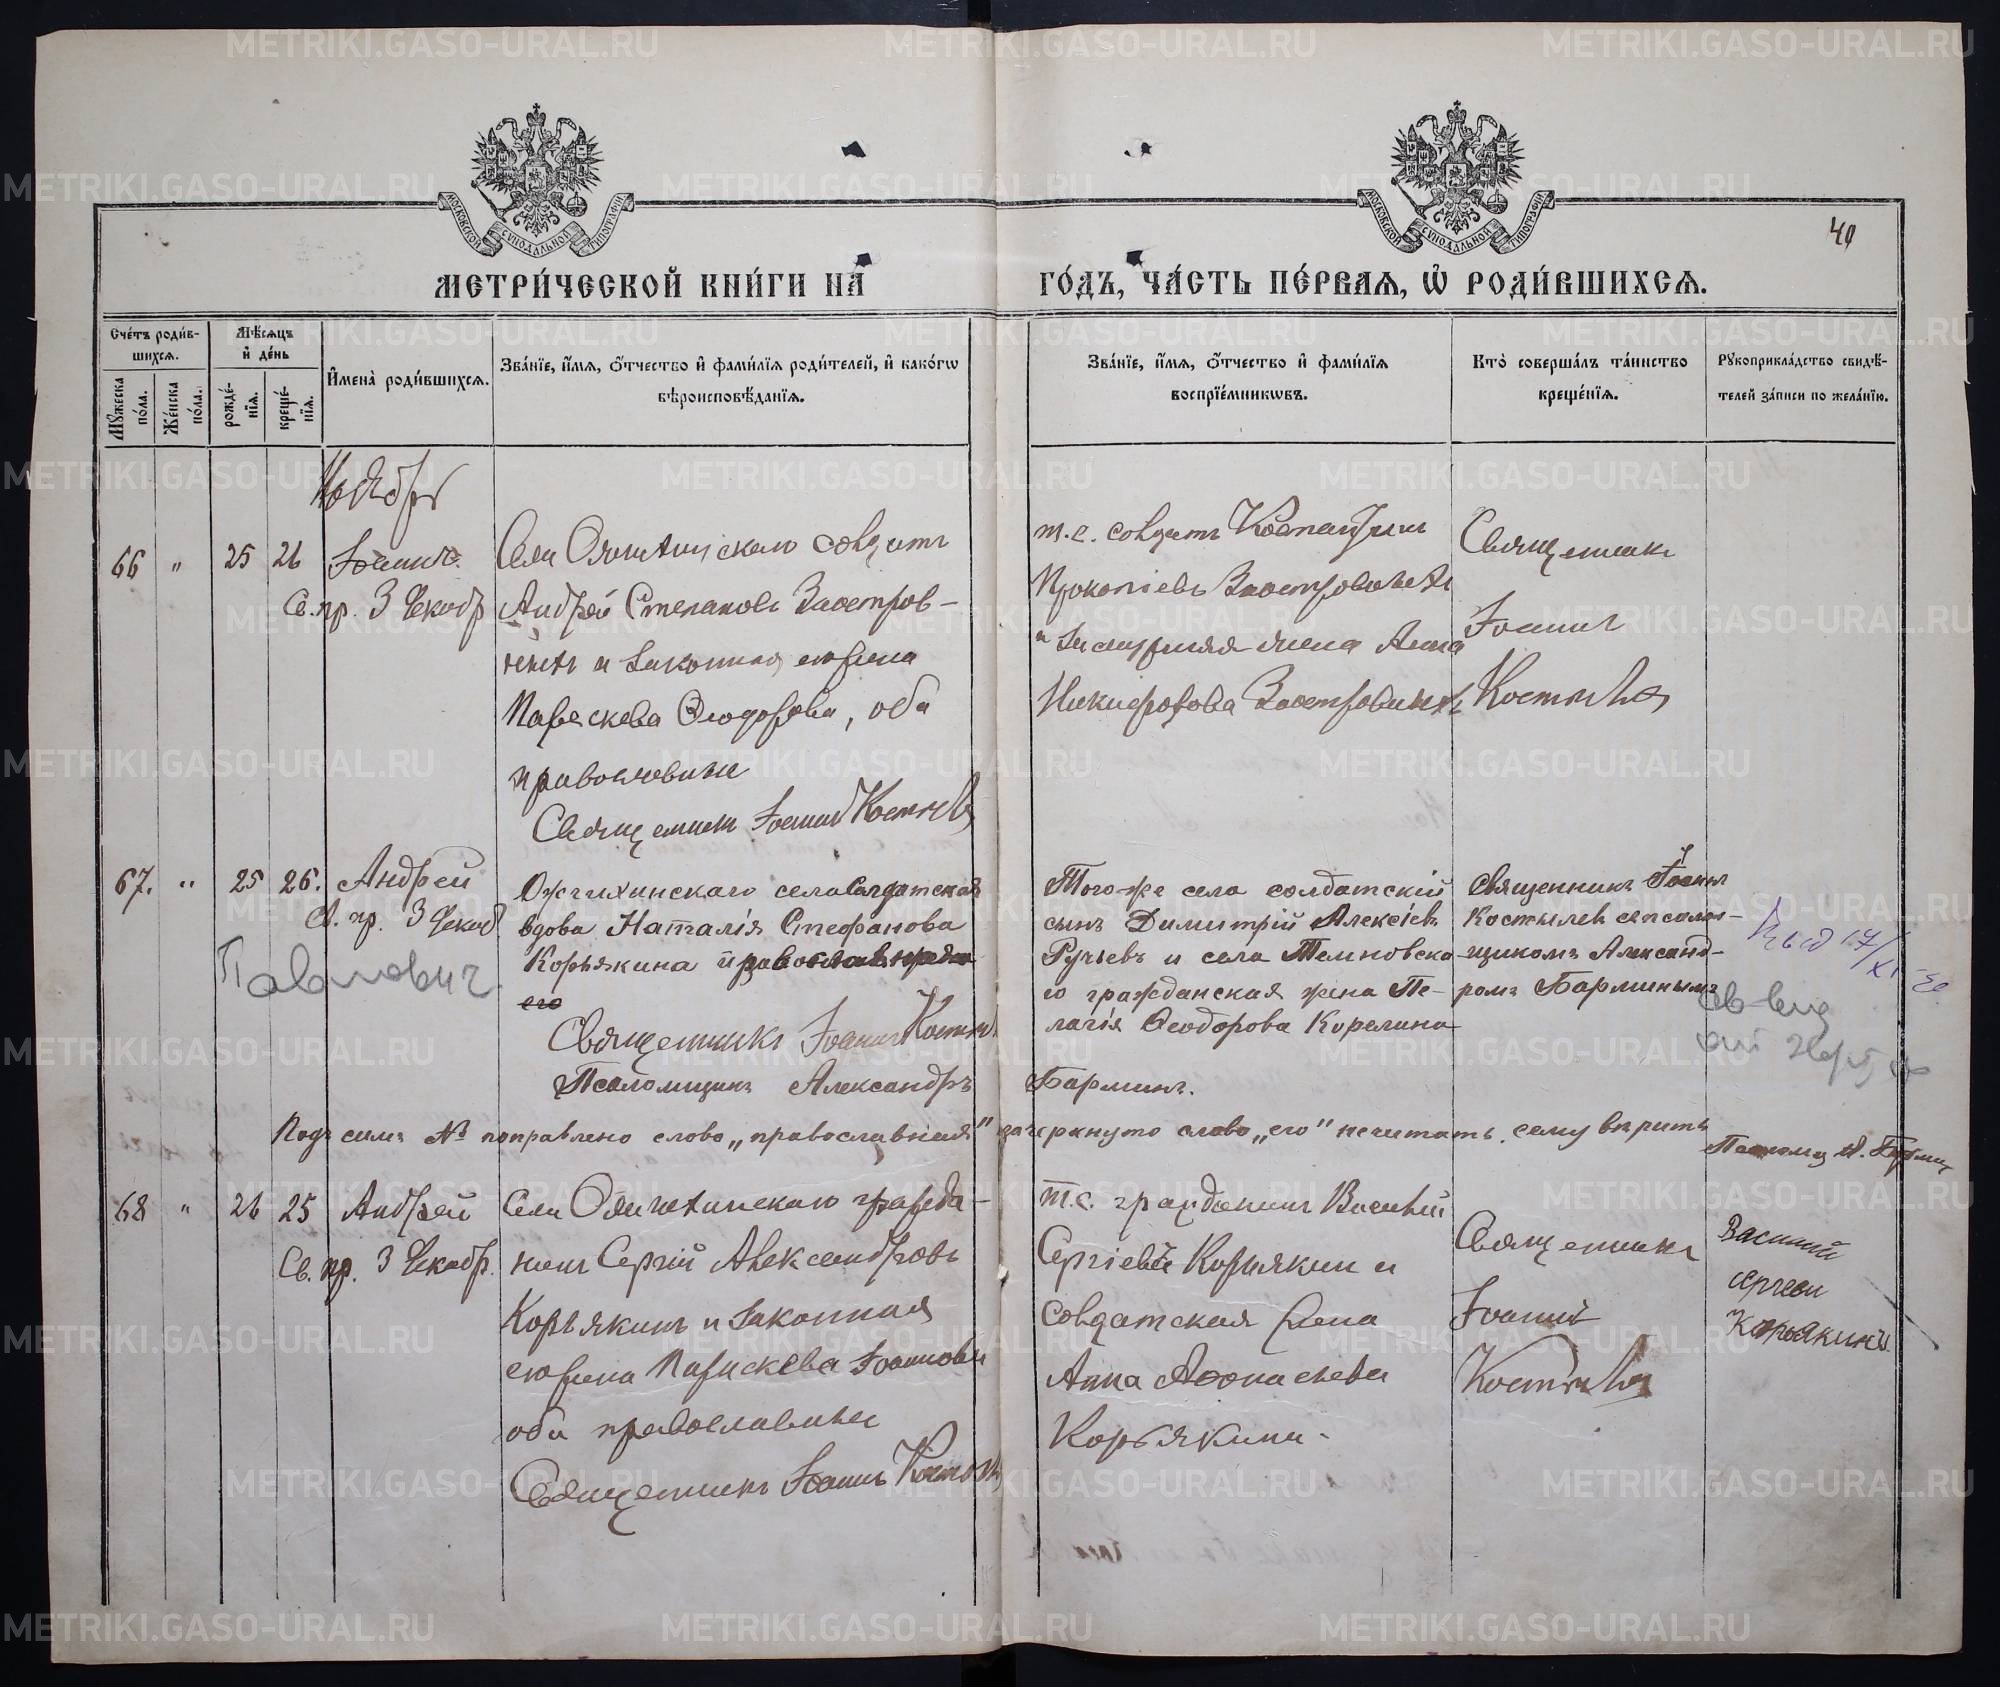 МОСКОВСКОЙ СѴНОДАЛЬНОЙ ТИПОГРАФІИ
МОСКОВСКОЙ СѴНОДАЛЬНОЙ ТИПОГРАФІИ
40
МЕТРИ́ЧЕСКОЙ КНИ́ГИ НА̀ ГО́ДЪ, ЧА́СТЬ ПЕ́РВАЯ, Ѡ҆ РОДИ́ВШИХСЯ.
Сче́тъ роди́в-
шихся.
Мѹ́жеска по́ла.
Же́нска по́ла.
Мѣ́сяцъ
и҆ де́нь
рожде́-
нїя.
креще́-
нїя.
И҆мена̀ роди́вшихся.
Зва́нїе, и҆́мя, ѻ҆́тчество и҆ фами́лїя роди́телей, и҆ како́гѡ
вѣроисповѣ́данїя.
Зва́нїе, и҆́мя, ѻ҆́тчество и҆ фами́лїя
воспрїе́мникѡвъ.
Кто̀ соверша́лъ та́инство
креще́нїя.
Рѹкоприкла́дство свидѣ́-
телей за́писи по жела́нїю.
Ноябрь
66 " 25 26 Іоаннъ.
Св. пр. 3 Декабр
Села солдатъ
Андрей Степановъ Заостров-
и законная жена
Параскева Ѳеодорова, оба
православные
Священникъ Іоаннъ Костылевъ
т.с. солдатъ Константинъ
Прокопіевъ
и жена Анна
Никифорова
Священникъ
Іоаннъ
Костылевъ
67. " 25 26. Андрей
Св. пр. 3 Декаб
Павлович
села Солдатская
вдова Наталія Стефанова
Корьякина православная
его
Священникъ Іоаннъ Костылевъ
Псаломщикъ Александръ Барминъ.
Того-же села солдатскій
сынъ Димитрій Алексіевъ
Ручьевъ и села Темновска-
го гражданская жена Пе-
лагія Ѳеодорова Корелина
Священникъ Іоаннъ
Костылев съ псалом-
щикомъ Александ-
ромъ Барминымъ
17/XI
Подъ симъ № поправлено слово „православная" зачеркнуто слово „его" нечитать. сему вѣрить
Псаломщ А. Бармин
68 " 26 25 Андрей
Св. пр. 3 Декабр.
Села гражда-
нинъ Сергій Александровъ
Корьякинъ и законная
жена Параскева Іоаннова
оба православные
Священникъ Іоаннъ Костылевъ
т.с. гражданинъ Василий
Сергіевъ Корьякин и
солдатская жена
Анна
Корьякина.
Священникъ
Іоаннъ
Костылевъ
Василий
Корьякинъ.
METRIKI.GASO-URAL.RU